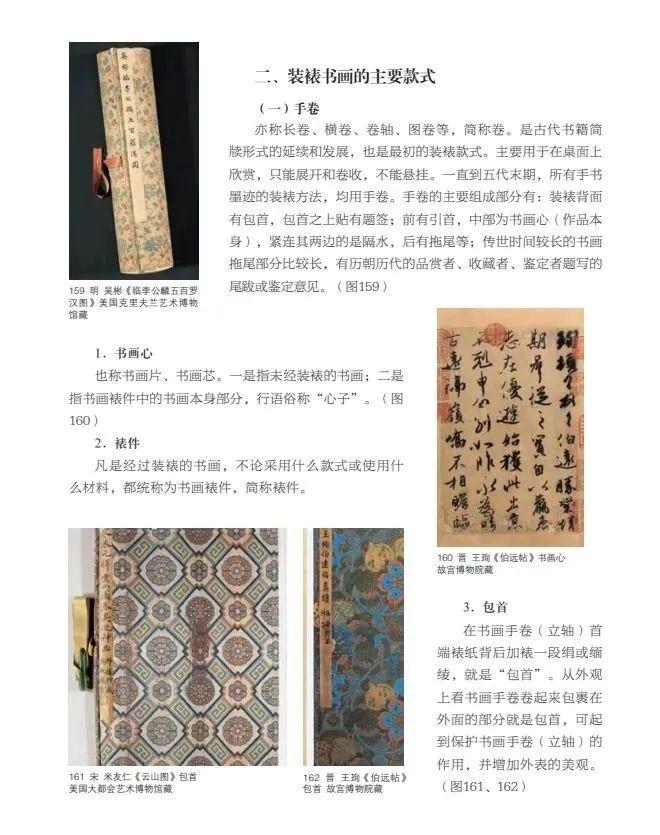 二、装裱书画的主要款式
（一）手卷
亦称长卷、横卷、卷轴、图卷等，简称卷。是古代书籍简
牍形式的延续和发展，也是最初的装裱款式。主要用于在桌面上
欣赏，只能展开和卷收，不能悬挂。一直到五代末期，所有手书
墨迹的装裱方法，均用手卷。手卷的主要组成部分有：装裱背面
有包首，包首之上贴有题签；前有引首，中部为书画心（作品本
身），紧连其两边的是隔水，后有拖尾等；传世时间较长的书画
拖尾部分比较长，有历朝历代的品赏者、收藏者、鉴定者题写的
尾跋或鉴定意见。（图159）
吴彬临李公麟五百罗汉图
159 明 吴彬《临李公麟五百罗
汉图》美国克里夫兰艺术博物
馆藏
1．书画心
也称书画片、书画芯。一是指未经装裱的书画；二是
指书画裱件中的书画本身部分，行语俗称“心子”。（图
160）
2．裱件
凡是经过装裱的书画，不论采用什么款式或使用什
么材料，都统称为书画裱件，简称裱件。
珣顿首顿首伯远胜业情
期群从之宝自以羸患
志在优游始获此出意
不剋申分别如昨永为畴
古远隔岭峤不相瞻临
160 晋 王珣《伯远帖》书画心
故宫博物院藏
王珣伯远帖真迹
161 宋 米友仁《云山图》包首
美国大都会艺术博物馆藏
162 晋 王珣《伯远帖》
包首 故宫博物院藏
3．包首
在书画手卷（立轴）首
端裱纸背后加裱一段绢或缅
绫，就是“包首”。从外观
上看书画手卷卷起来包裹在
外面的部分就是包首，可起
到保护书画手卷（立轴）的
作用，并增加外表的美观。
（图161、162）